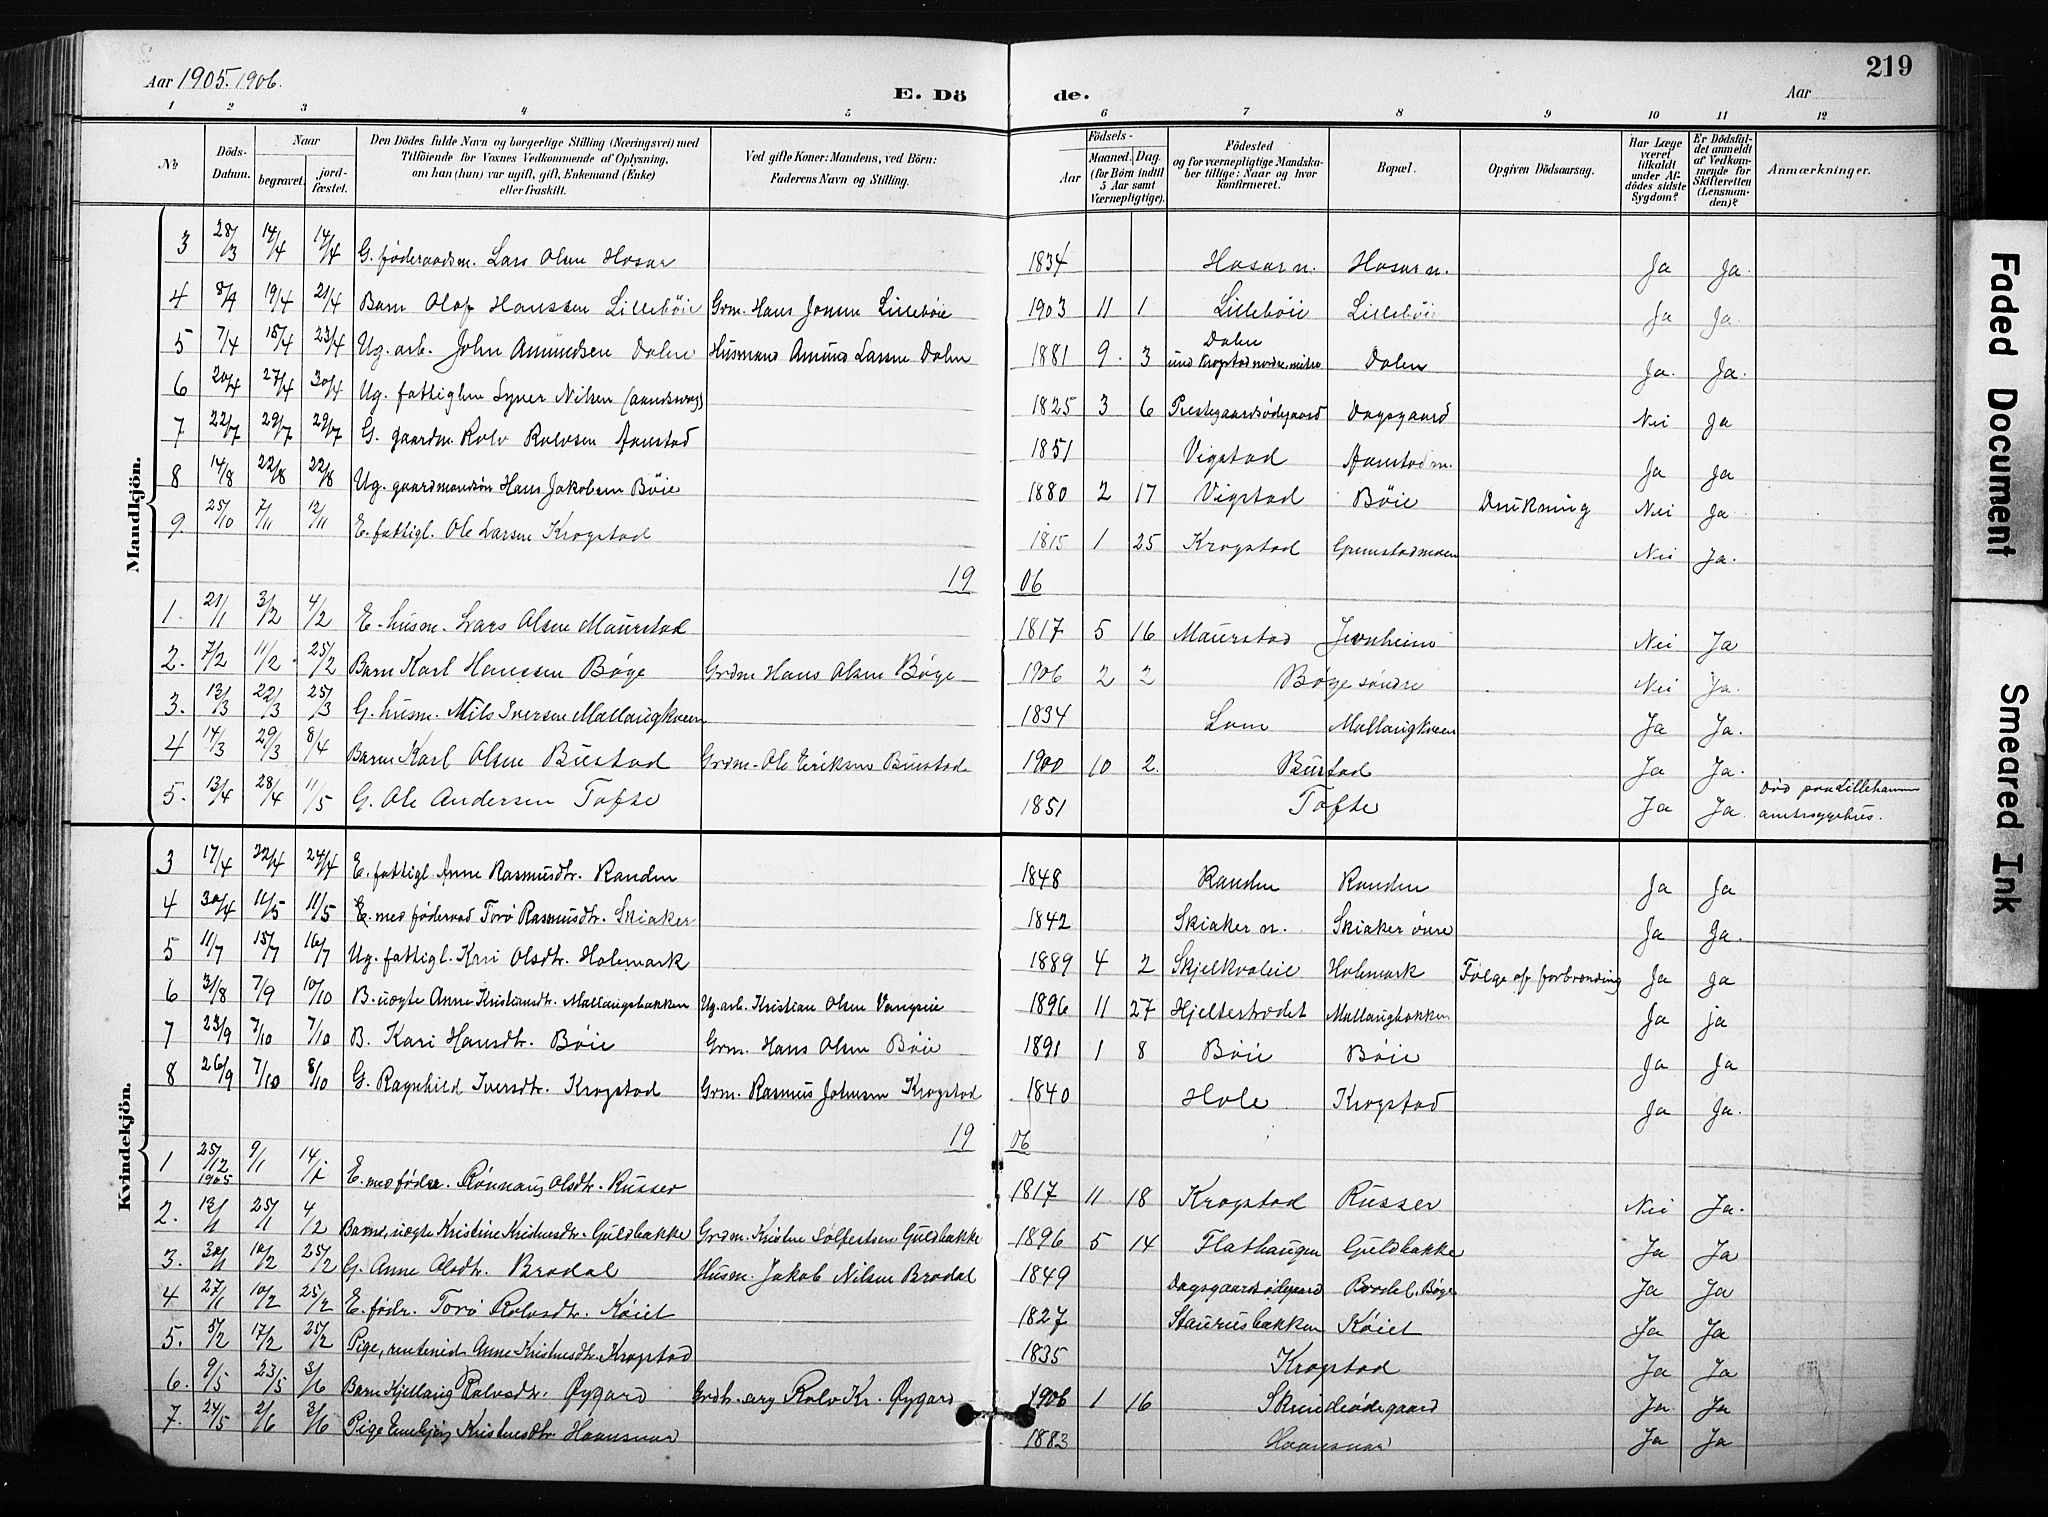 Aar 1905. 1906.
E. Dö de.
Aar
219
1 2 3 4 5 6 7 8 9 10 11 12
No
Döds-Datum.
Naar
begravet.
jord-fæstet.
Den Dödes fulde Navn og borgerlige Stilling (Næringsvei) med
Tilföiende for Voxnes Vedkommende af Oplysning,
om han (hun) var ugift, gift, Enkemand (Enke)
eller fraskilt.
Ved gifte Koner: Mandens, ved Börn:
Faderens Navn og Stilling.
Födsels-
Aar
Maaned. Dag.
(for Börn indtil
5 Aar samt
Værnepligtige).
Födested
og for værnepligtige Mandska-
ber tillige: Naar og hvor
konfirmeret.
Bopæl.
Opgiven Dödsaarsag.
Har Læge
været
tilkaldt
under Af-
dödes sidste
Sygdom?
Er Dödsfal-
det anmeldt
af Vedkom-
mende for
Skifteretten
(Lensman-
den)?
Anmærkninger.
Mandkjön.
3 28/3 14/4 14/4 G. föderaadsm. Lars Olsen Hosar 1834 Hosar n. Hosar n. Ja Ja.
4 8/4 19/4 21/4 Barn Olaf Hanssen Lillebøie Grm. Hans Lillebøie 1903 11 1 Lillebøie Lillebøie Ja Ja.
5 7/4 15/4 23/4 Ug. arb. John Amundsen Dalen Husmand Amund Larsen Dalen 1881 9. 3 Dalen Dalen Ja. Ja.
6 20/4 27/4 30/4 Ug. fattiglem Syver Nilsen (aandssvag) 1825 3 6 Prestegaardsødegaard Dagsgaard Nei Ja
7 22/7 29/7 29/7 G. gaardm. Rolv Rolvsen Aanstad 1851 Vigstad Aanstad n. Ja Ja
8 14/8 22/8 22/8 Ug. gaardmandsøn Hans Jakobsen Bøie 1880 2 17 Vigstad Bøie Drukning Nei Ja
9. 25/10 7/11 12/11 E. fattigl. Ole Larsen Krogstad 1815 1 25 Krogstad Nei Ja.
19 06
1. 21/1 3/2 4/2 E. husm. Lars Olsen Maurstad 1817 5 16 Maurstad Nei Ja
2. 7/2 11/2 25/2 Barn Karl Hanssen Bøge Grdm Hans Olsen Bøge 1906 2 2 Bøge søndre Nei Ja.
3. 13/3 22/3 25/3 G. husm. Nils Iversen Mallaugkveen 1834 Lom Mallaugkveen Ja Ja.
4 14/3 29/3 8/4 Barn Karl Olsen Bustad Grdm. Ole Eriksen Bustad 1900 10 2. Bustad Ja Ja.
5. 13/4 28/4 11/5 G. Ole Andersen Tofte 1851 Tofte Ja Ja. Død paa Lillehammer
amtssygehus.
Kvindekjön.
3 17/4 22/4 24/4 E. fattigl Anne Rasmusdtr. Randen 1848 Randen Randen Ja Ja
4 30/4 11/5 11/5 E. med føderaad Torø Rasmusdtr. Skiaker 1842 Skiaker n. Skiaker øvre Ja Ja.
5 11/7 15/7 16/7 Ug. fattigl. Kari Olsdtr. Holemark 1889 4 2 Skjelkvaleie Holemark Følge af forbrænding Ja Ja
6 31/8 7/9 10/10 B. uægte Anne Kristiansdtr. Mallaugsbakken Ug. arb. Kristian Olsen 1896 11 27 Mallaugbakken Ja ja
7 23/9 7/10 7/10 B. Kari Hansdtr. Bøie Grm. Hans Olsen Bøie 1891 1 8 Bøie Bøie Ja Ja
8 26/9 7/10 8/10 G. Ragnhild Iversdtr. Krogstad Grm. Rasmus Johnsen Krogstad 1840 Hole Krogstad Ja Ja.
19 06
1 25/12 1905 9/1 14/1 E. med føder. Rønnaug Olsdtr. Russer 1817 11 18 Krogstad Russer Nei Ja.
2. 13/1 25/1 4/2 Barn, uægte Kristine Kristensdtr. Guldbakke Grdm. Kristen Sølfestsen Guldbakke 1896 5 14 Flathaugen Guldbakke Ja Ja
3. 30/1 10/2 25/2 G. Anne Olsdtr. Brodal Husm. Jakob Nilsen Brodal 1849 Dagsgaardsødegaard Brodal, Bøge Ja Ja
4 27/1 10/2 25/2 E. føder. Torø Rolvsdtr. Køiet 1827 Staurusbakken Køiet Ja Ja
5. 5/2 17/2 25/2 Pige, rentenid Anne Kristensdtr. Krogstad 1835 Krogstad Ja Ja
6. 9/5 23/5 3/6 Barn Kjellaug Rolvsdtr. Øygard Grdbr. Rolv Kr. Øygard 1906 1 16 Skrindeødegaard Ja Ja
7. 24/5 2/6 3/6 Pige Kristensdtr. 1883 Ja Ja
Faded Document
Smeared Ink